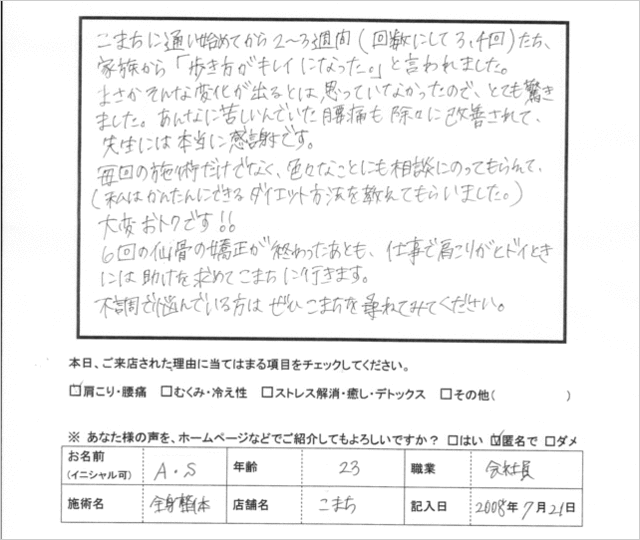 こまちに通い始めてから2〜3週間(回数にして3,4回)たち、
家族から「歩き方がキレイになった。」と言われました。
まさかそんな変化が出るとは思っていなかったので、とても驚き
ました。あんなに苦しいんでいた腰痛も除々に改善されて、
先生には本当に感謝です。
毎回の施術だけでなく、色々なことにも相談にのってもらえて、
(私はかんたんにできるダイエット方法を教えてもらいました。)
大変おトクです!!
6回の仙骨の矯正が終わったあとも、仕事で肩こりがヒドイとき
には助けを求めてこまちに行きます。
不調で悩んでいる方はぜひこまちを尋ねてみてください。
本日、ご来店された理由に当てはまる項目をチェックしてください。
☑肩こり・腰痛 □むくみ・冷え性 □ストレス解消・癒し・デトックス □その他( )
※ あなた様の声を、ホームページなどでご紹介してもよろしいですか? □はい ☑匿名で □ダメ
お名前 (イニシャル可) A・S 年齢 23 職業 会社員
施術名 全身整体 店舗名 こまち 記入日 2008年7月21日